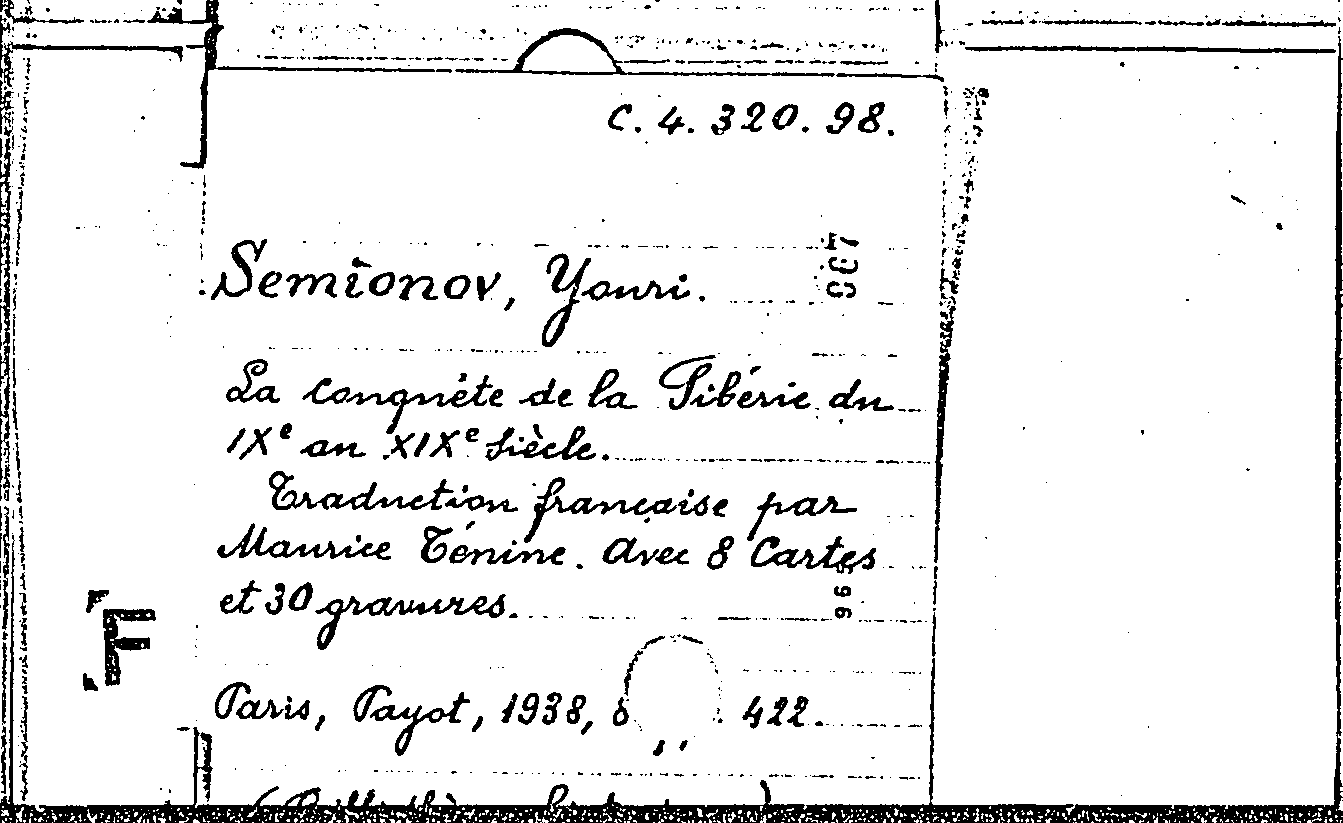 C. 4. 320. 98.
Semionov, Youri.
La conquête de la Sibérie du
IXe au XIXe siècle.
Traduction française par
Maurice Ténine. Avec 8 Cartes
et 30 gravures.
F
Paris, Payot, 1938, 8 422.